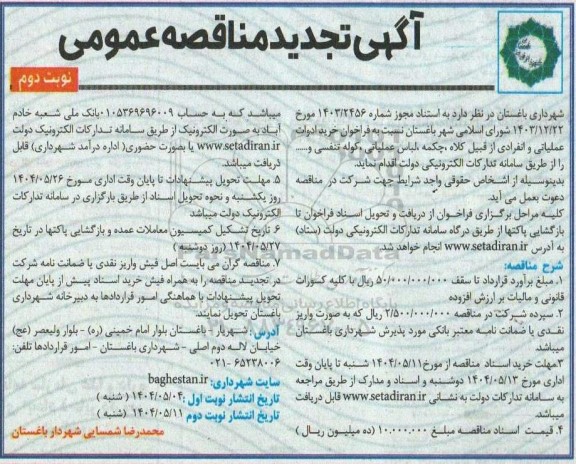 آگهی تجدید مناقصه عمومی
نوبت دوم
شهرداری باغستان در نظر دارد به استناد مجوز شماره ۱۴۰۳/۲۴۵۶ مورخ
۱۴۰۳/۱۲/۲۲ شورای اسلامی شهر باغستان نسبت به فراخوان خرید ادوات
عملیاتی و انفرادی از قبیل کلاه ،چکمه ،لباس عملیاتی ،کوله تنفسی و.....
را از طریق سامانه تدارکات الکترونیکی دولت اقدام نماید.
بدینوسیله از اشخاص حقوقی واجد شرایط جهت شرکت در مناقصه
دعوت بعمل می آید.
کلیه مراحل برگزاری فراخوان از دریافت و تحویل اسناد فراخوان تا
بازگشایی پاکتها از طریق درگاه سامانه تدارکات الکترونیکی دولت (ستاد)
به آدرس www.setadiran.ir انجام خواهد شد.
شرح مناقصه:
۱. مبلغ برآورد قرارداد تا سقف ۵۰/۰۰۰/۰۰۰/۰۰۰ ریال با کلیه کسورات
قانونی و مالیات بر ارزش افزوده
۲. سپرده شرکت در مناقصه ۲/۵۰۰/۰۰۰/۰۰۰ ریال که به صورت واریز
نقدی یا ضمانت نامه معتبر بانکی مورد پذیرش شهرداری باغستان
میباشد
۳مهلت خرید اسناد مناقصه از مورخ ۱۴۰۴/۰۵/۱۱ شنبه تا پایان وقت
اداری مورخ ۱۴۰۴/۰۵/۱۳ دوشنبه و اسناد و مدارک از طریق مراجعه
به سامانه تدارکات دولت به نشانی www.setadiran.ir قابل دریافت
میباشد.
۴. قیمت اسناد مناقصه مبلغ ۱۰.۰۰۰.۰۰۰ (ده میلیون ریال )
میباشد که به حساب ۰۱۰۵۳۶۹۶۹۶۰۰۹ بانک ملی شعبه خادم
آباد به صورت الکترونیک از طریق سامانه تدارکات الکترونیک دولت
www.setadiran.ir یا بصورت حضوری( اداره درآمد شهرداری) قابل
دریافت میباشد.
۵. مهلت تحویل پیشنهادات تا پایان وقت اداری مورخ ۱۴۰۴/۰۵/۲۶
روز یکشنبه و نحوه تحویل اسناد از طریق بارگزاری در سامانه تدارکات
الکترونیک دولت میباشد
۶ تاریخ تشکیل کمیسیون معاملات عمده و بازگشایی پاکتها در تاریخ
۱۴۰۴/۰۵/۲۷ (روز دوشنبه )
۷. مناقصه گران می بایست اصل فیش واریز نقدی یا ضمانت نامه شرکت
در تجدید مناقصه را به همراه فیش خرید اسناد پیش از پایان مهلت
تحویل پیشنهادات با هماهنگی امور قراردادها به دبیرخانه شهرداری
باغستان تحویل نمایند.
آدرس: شهریار - باغستان بلوار امام خمینی (ره) - بلوار ولیعصر (عج)
خیابان لاله دوم اصلی - شهرداری باغستان - امور قراردادها تلفن:
۶۵۲۳۸۰۰۶ -۰۲۱
سایت شهرداری: baghestan.ir
تاریخ انتشار نوبت اول :۱۴۰۴/۰۵/۰۴ ( شنبه )
تاریخ انتشار نوبت دوم ۱۴۰۴/۰۵/۱۱ (شنبه )
محمدرضا شمسایی شهردار باغستان